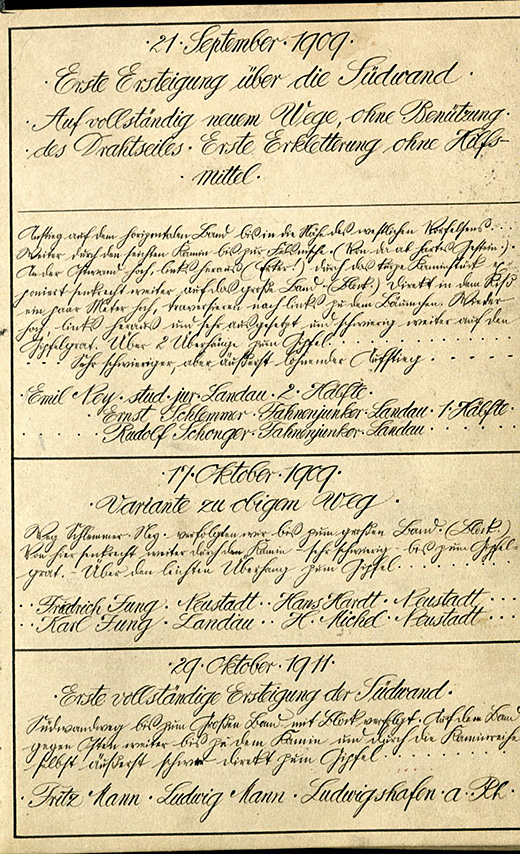 ·21· September·1909·
·Erste Ersteigung über die Südwand·
·Auf vollständig neuem Wege, ohne Benützung·
·des Drahtseiles· Erste Erkletterung ohne Hilfs-
·mittel·
Aufstieg auf dem horizontalen Band bis in die Nähe des westlichen Vorfelsens...
Weiter durch den seichten Kamin bis zur Felsnische. (Von da ab hartes Gestein.)·
An der Ostwand hoch, links heraus (      ) durch das kurze Kaminstück ex-
poniert senkrecht weiter auf das große Band. (Block.) Direkt in dem Riß
ein paar Meter hoch, traversieren nach links zu dem Bäumchen. Wieder
hoch, links heraus und sehr ausgesetzt und schwierig weiter auf den
Gipfelgrat. Über 2 Überhänge zum Gipfel.......
Sehr schwieriger aber äußerst lohnender Aufstieg....
Emil Ney· stud· jur· Landau· 2· Hälfte·
Ernst Schlemmer· Fahnenjunker· Landau· 1· Hälfte·
Rudolf Schonger· Fahnenjunker· Landau·
·17· Oktober·1909·
·Variante zu obigem Weg·
Weg Schlemmer-Ney· verfolgten wir bis zum großen Band· (Block.)
Von hier senkrecht weiter durch den Kamin - sehr schwierig - bis zum Gipfel-
grat. - Über den leichten Überhang zum Gipfel....
··Friedrich Jung· Neustadt·· Hans Hardt· Neustadt···
··Karl Jung· Landau·· H· Michel· Neustadt···
·29·Oktober·1911·
·Erste vollständige Ersteigung der Südwand·
Südwandweg bis zum Großen Band mit Block verfolgt. Auf dem Band
gegen Osten weiter bis zu dem Kamin und durch die Kaminreihe
selbst äußerst schwer direkt zum Gipfel.....
·Fritz Mann· Ludwig Mann· Ludwigshafen· a· Rh·